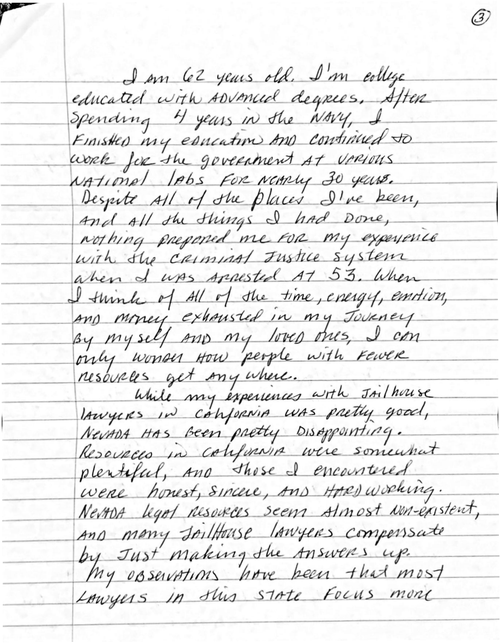 3
I am 62 years old. I'm college
educated with ADVANCED degrees. After
spending 4 years in the NAVY, I
Finished my education AND continued to
work for the government AT verious
NATIONAL labs FOR Nearly 30 years.
Despite All of the places I've been,
And All the things I had Done,
nothing prepared me FOR my experience
with the CRIMINAL Justice System
when I was ARRESTED AT 53. When
I think of All of the time, energy, emotion,
AND money exhausted in my Journey
By myself AND my loved ones, I can
only wonder How people with Fewer
resources get Anywhere.
While my experiences with Jailhouse
lawyers in CAlifornia was pretty good,
NEVADA HAS Been pretty Disappointing.
Resources in CAlifornia were somewhat
plentiful, AND those I encountered
were honest, sincere, AND HARDworking.
NEVADA legal Resources seem Almost NON-existent,
AND many Jailhouse lawyers compensate
by Just making the Answers up.
My observations have been that most
Lawyers in this STATE Focus more